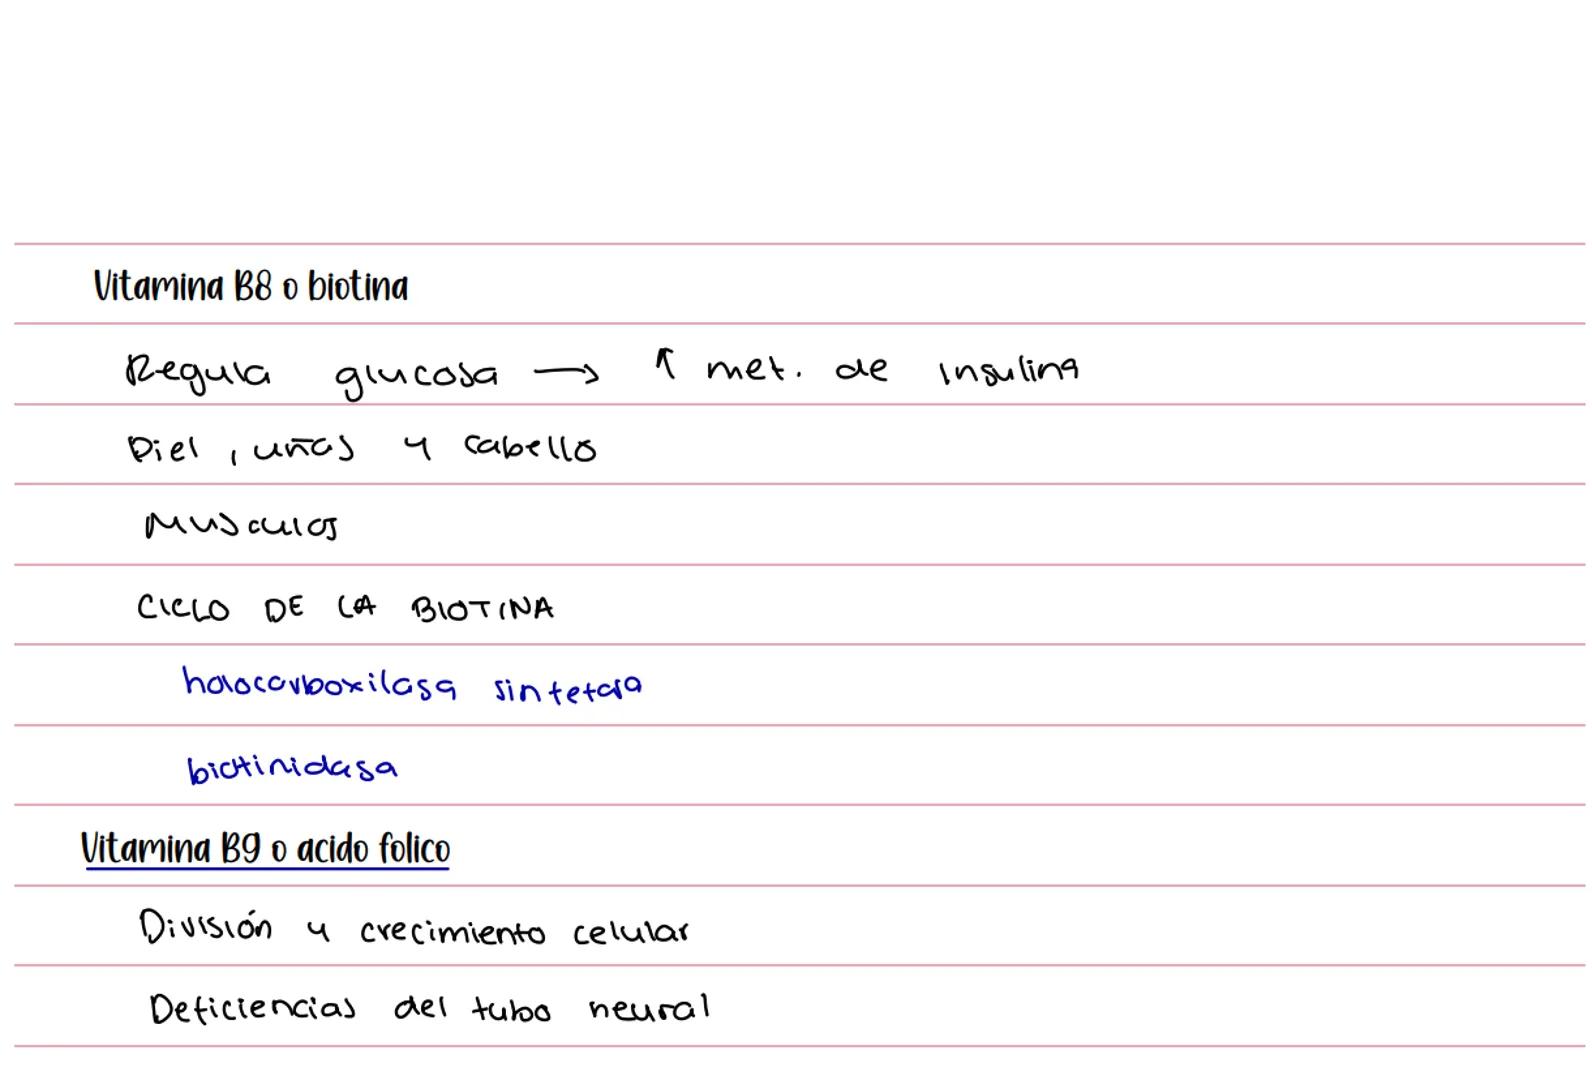 Vitamina B8 o biotina
Regula glucosa → ↑ met. de insulina
Piel, uñas y cabello
Musculos
CICLO DE LA BIOTINA
holocarboxilasa sintetasa
biotinidasa
Vitamina B9 o acido folico
División y crecimiento celular
Deficiencias del tubo neural